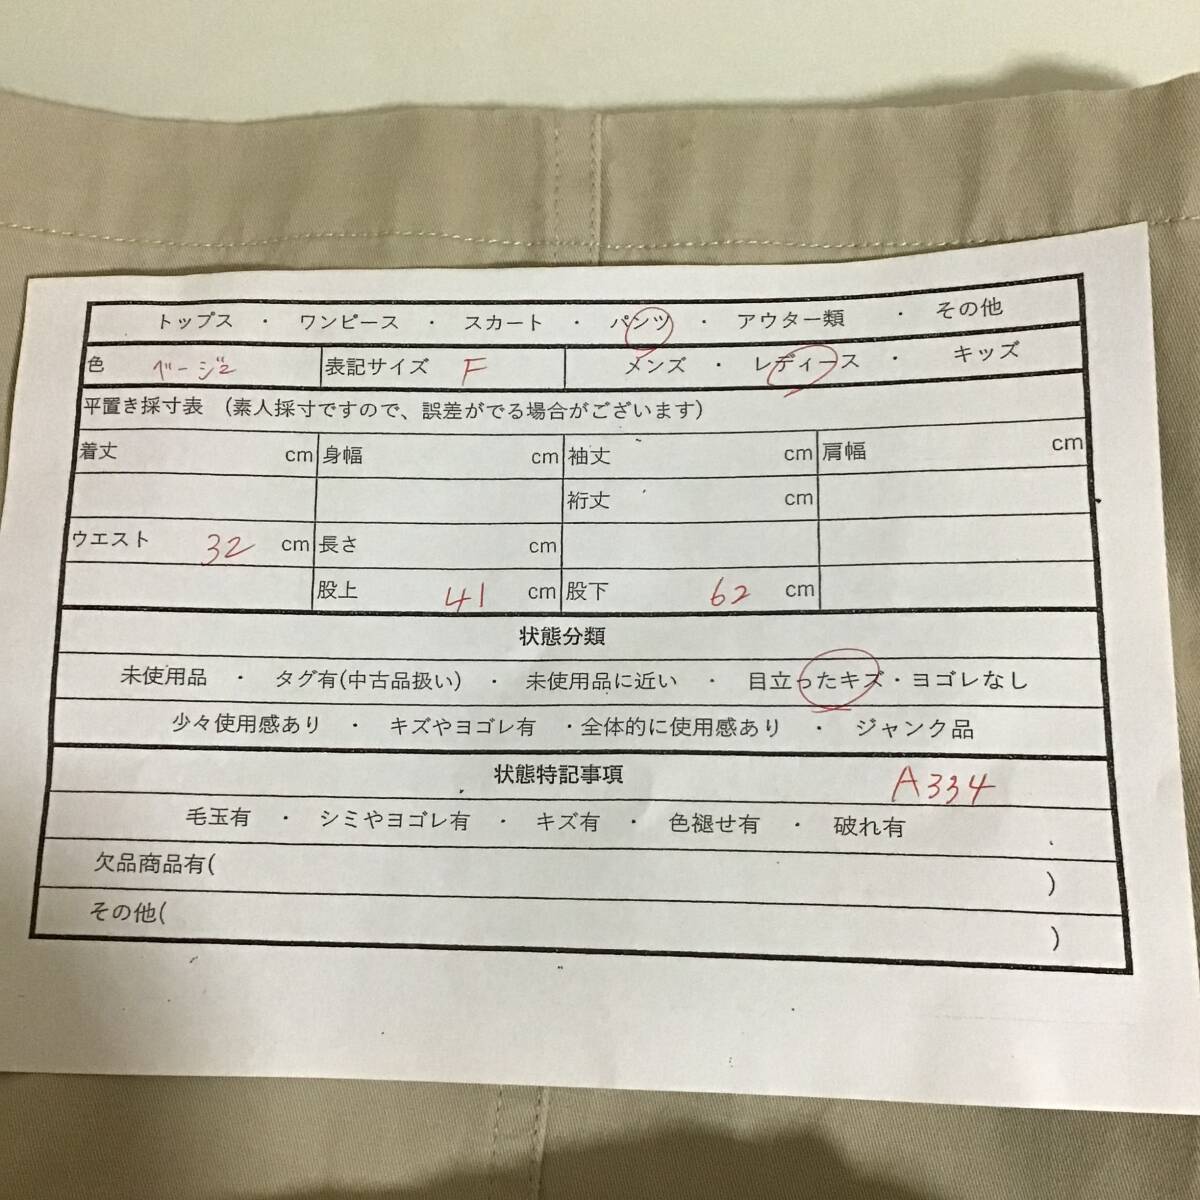 トップス ・ ワンピース ・ スカート ・ パンツ ・ アウター類 ・ その他
色 ベージュ 表記サイズ F メンズ ・ レディース ・ キッズ
平置き採寸表 (素人採寸ですので、誤差がでる場合がございます)
着丈 cm 身幅 cm 袖丈 cm 肩幅 cm
裄丈 cm
ウエスト 32 cm 長さ cm
股上 41 cm 股下 62 cm
状態分類
未使用品 ・ タグ有(中古品扱い) ・ 未使用品に近い ・ 目立ったキズ・ヨゴレなし
少々使用感あり ・ キズやヨゴレ有 ・全体的に使用感あり ・ ジャンク品
状態特記事項 A334
毛玉有 ・ シミやヨゴレ有 ・ キズ有 ・ 色褪せ有 ・ 破れ有
欠品商品有( )
その他( )